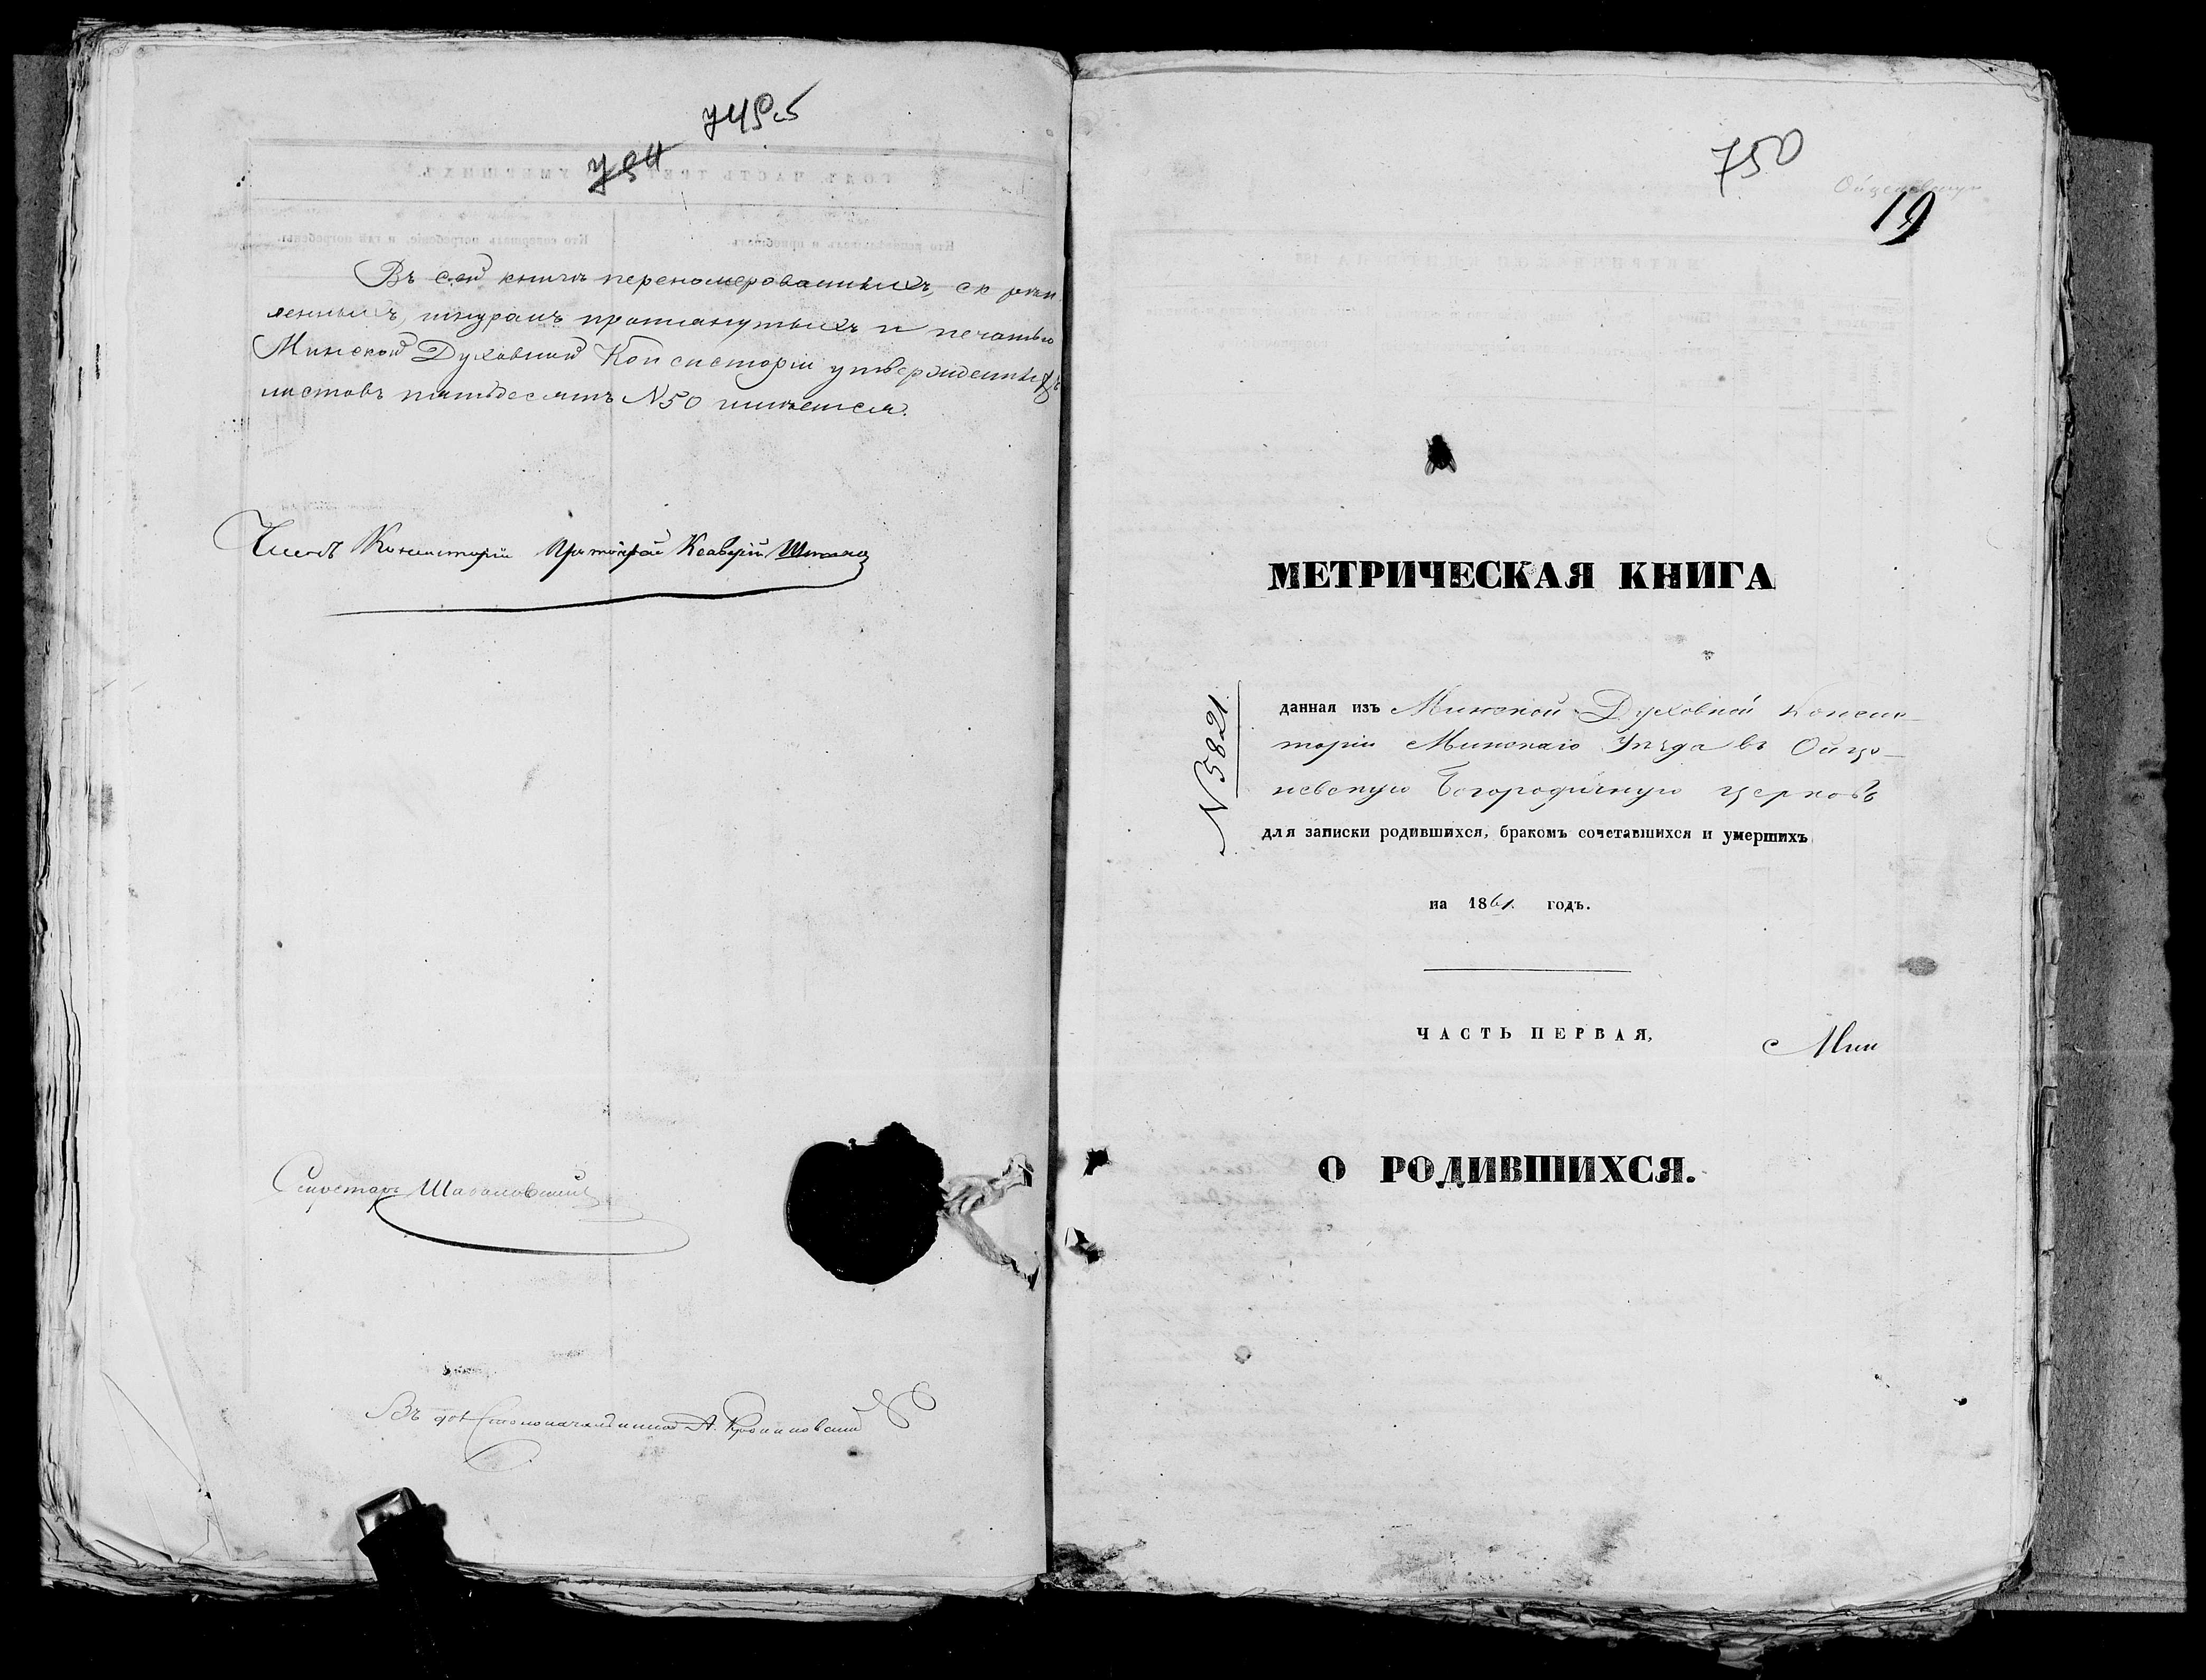 749об
794
Въ сей книгѣ перенумерованныхъ, скрѣп
ленныхъ, шнуромъ протянутыхъ и печатью
Минской Духовной Консисторіи утвержденныхъ
листовъ пятьдесятъ N50 имѣется.
Членъ Консисторіи Протоіерей
Секретарь
Въ дол Столоначальника А.
750
19
МЕТРИЧЕСКАЯ КНИГА
N5821.
данная изъ Минской Духовной Консис-
торіи Минскаго Уѣзда въ Ойцо-
невскую Богородичную церковь
для записки родившихся, бракомъ сочетавшихся и умершихъ
на 1861. годъ.
ЧАСТЬ ПЕРВАЯ,
Мин
О РОДИВШИХСЯ.